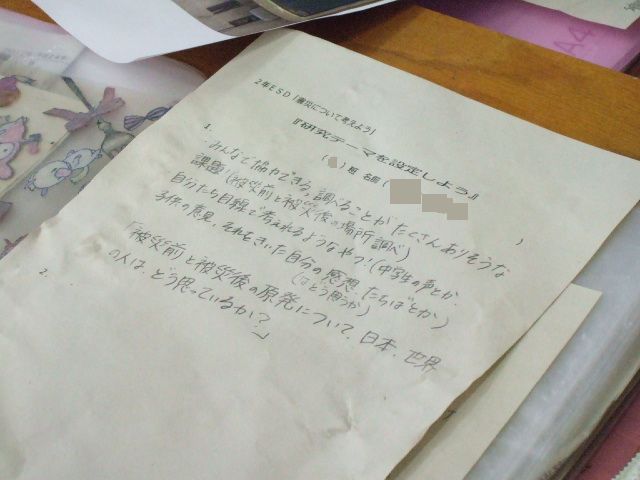 2年ESD「震災について考えよう」
『研究テーマを設定しよう』
( )組 名前( )
1.
みんなで協力できる。調べることがたくさんありそうな
課題!(被災前と被災後の場所調べ)
自分たち目線で考えれるようなやつ!(中学生の声とか、
子供の意見。それをきいた自分の感想、たちばとか)
(はどう思うか)
「被災前と被災後の原発について、日本、世界
の人は、どう思っているか?」
2.
A4